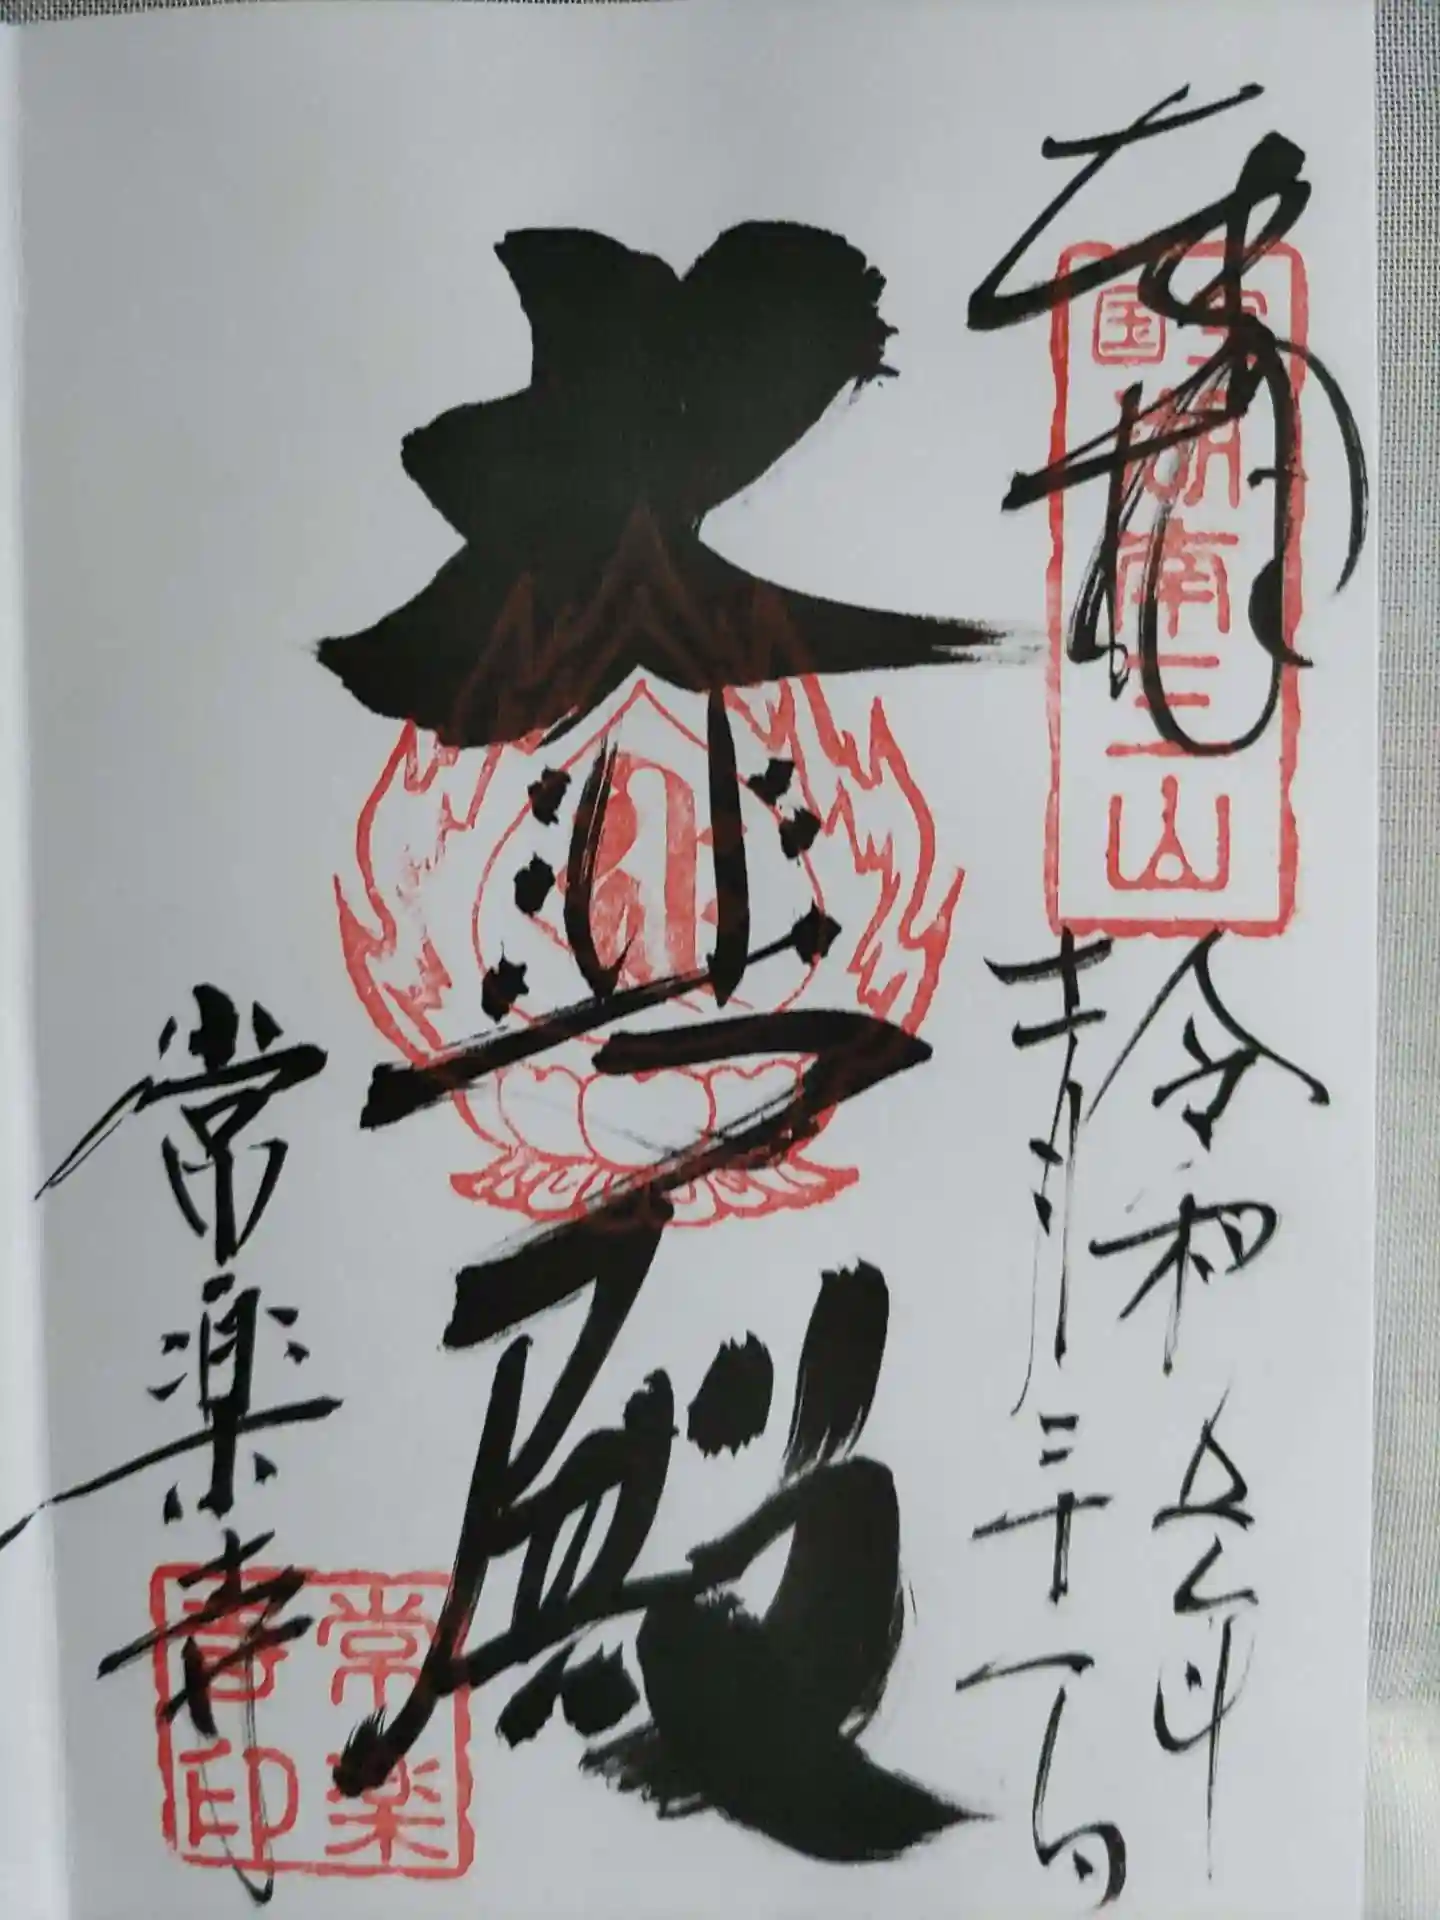 奉拝
国宝
湖南三山
令和五年
月三十一日
大悲殿
常楽寺
常楽
寺印